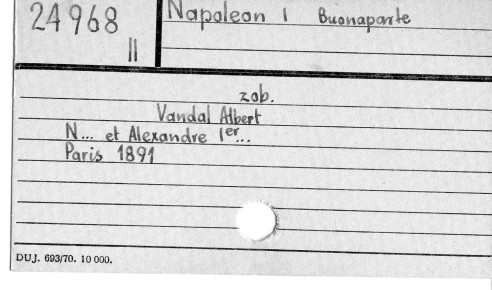 24968
II
Napoleon I Buonaparte
zob.
Vandal Albert
N... et Alexandre Ier...
Paris 1891
DUJ. 693/70. 10 000.